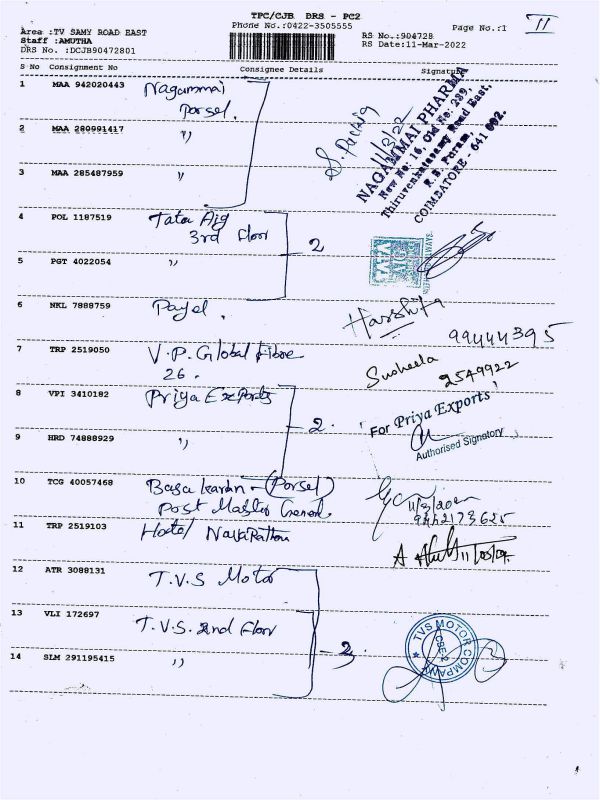 TPC/CJB DRS - PC2
Phone No.:0422-3505555
Page No.:1
11
Area :TV SAMY ROAD EAST
Staff :AMUTHA
DRS No. :DCJB90472801
RS No.:904728
RS Date:11-Mar-2022
S No Consignment No Consignee Details Signature
1 MAA 942020443 Nagammai
Porsel.
2 MAA 280991417 "
3 MAA 285487959 "
11/3/22
NAGAMMAI PHARMA
New No: 16, Old No: 289,
Thiruvenkatasamy Road East,
R.S. Puram,
COIMBATORE - 641 002.
4 POL 1187519 Tata Aig
3rd Floor
2
5 PGT 4022054 "
6 NKL 7888759 Payel.
Harshita
99444395
7 TRP 2519050 V.P. Global Fibre
26.
Susheela
2549922
8 VPI 3410182 Priya Exports
2.
9 HRD 74888929 "
For Priya Exports
Authorised Signatory
10 TCG 40057468 Baskaran - (Porsel)
Post Master General.
9442173625
11 TRP 2519103 Hotel
12 ATR 3088131 T.V.S Motor
13 VLI 172697 T.V.S. 2nd Floor
14 SLM 291195415 "
TVS MOTOR COMPANY
CBE-2